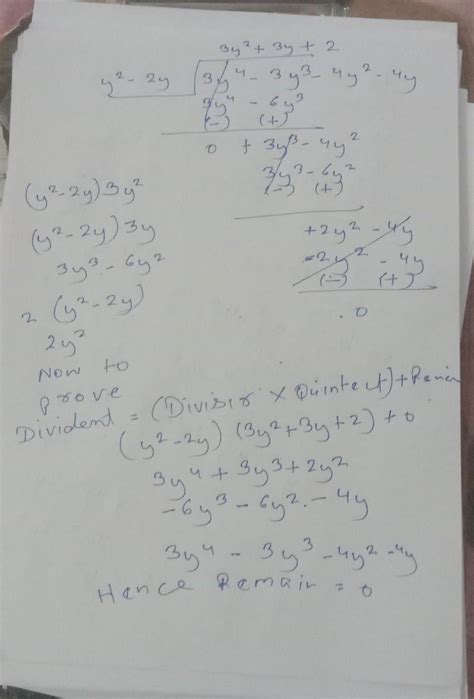 3y² + 3y + 2
y² - 2y 3y⁴ - 3y³ - 4y² - 4y
3y⁴ - 6y³
(-) (+)
0 + 3y³ - 4y²
3y³ - 6y²
(-) (+)
+2y² - 4y
-2y² - 4y
(-) (+)
.0
(y² - 2y) 3y²
(y² - 2y) 3y
3y³ - 6y²
2 (y² - 2y)
2y²
Now to
prove
Dividend = (Divisir × Quintect) +
(y² - 2y) (3y² + 3y + 2) + 0
3y⁴ + 3y³ + 2y²
-6y³ - 6y² - 4y
3y⁴ - 3y³ - 4y² - 4y
Hence Remain = 0